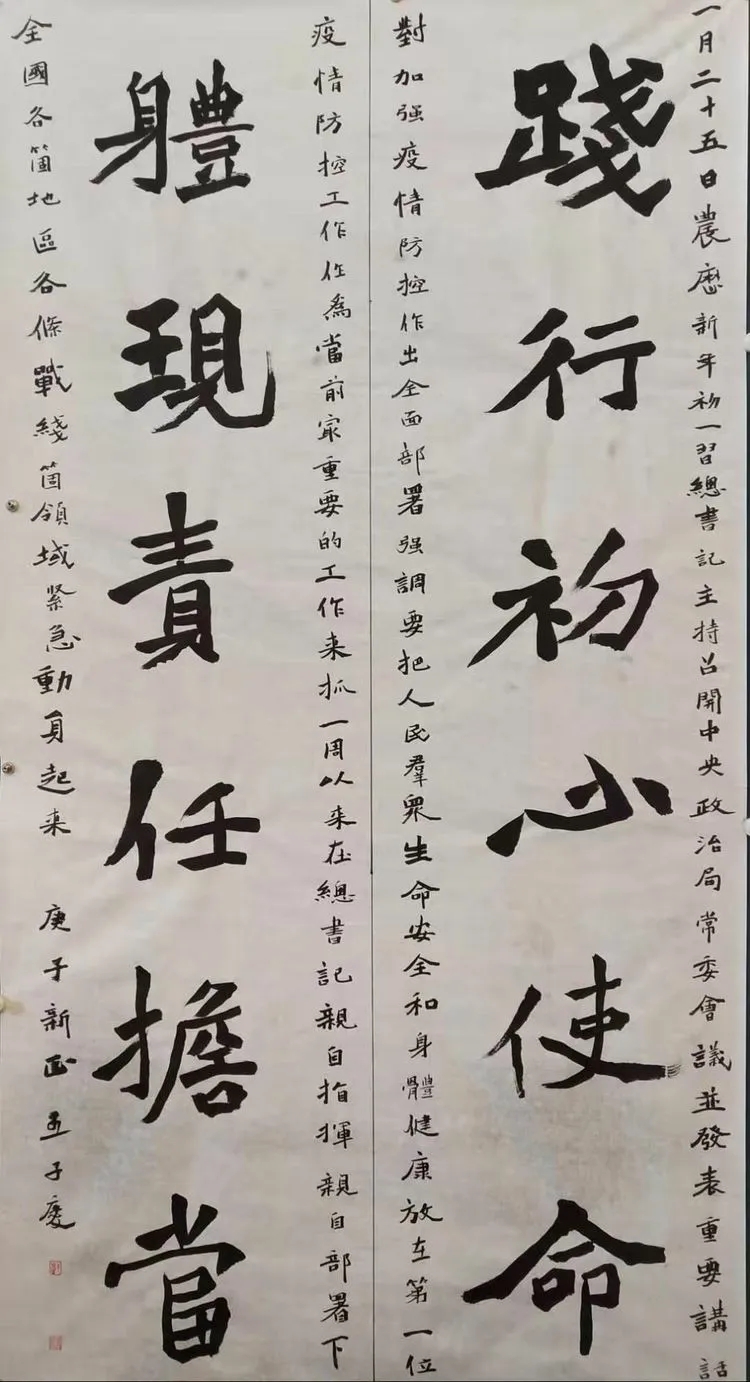 一月二十五日農曆新年初一習總書記主持召開中央政治局常委會議並發表重要講話
踐行初心使命
對加强疫情防控作出全面部署强調要把人民羣眾生命安全和身體健康放在第一位
疫情防控工作作為當前最重要的工作来抓一周以来在總書記親自指揮親自部署下
軆現責任擔當
全國各箇地區各條戰綫箇領域緊急動員起来
庚子新正 王子慶